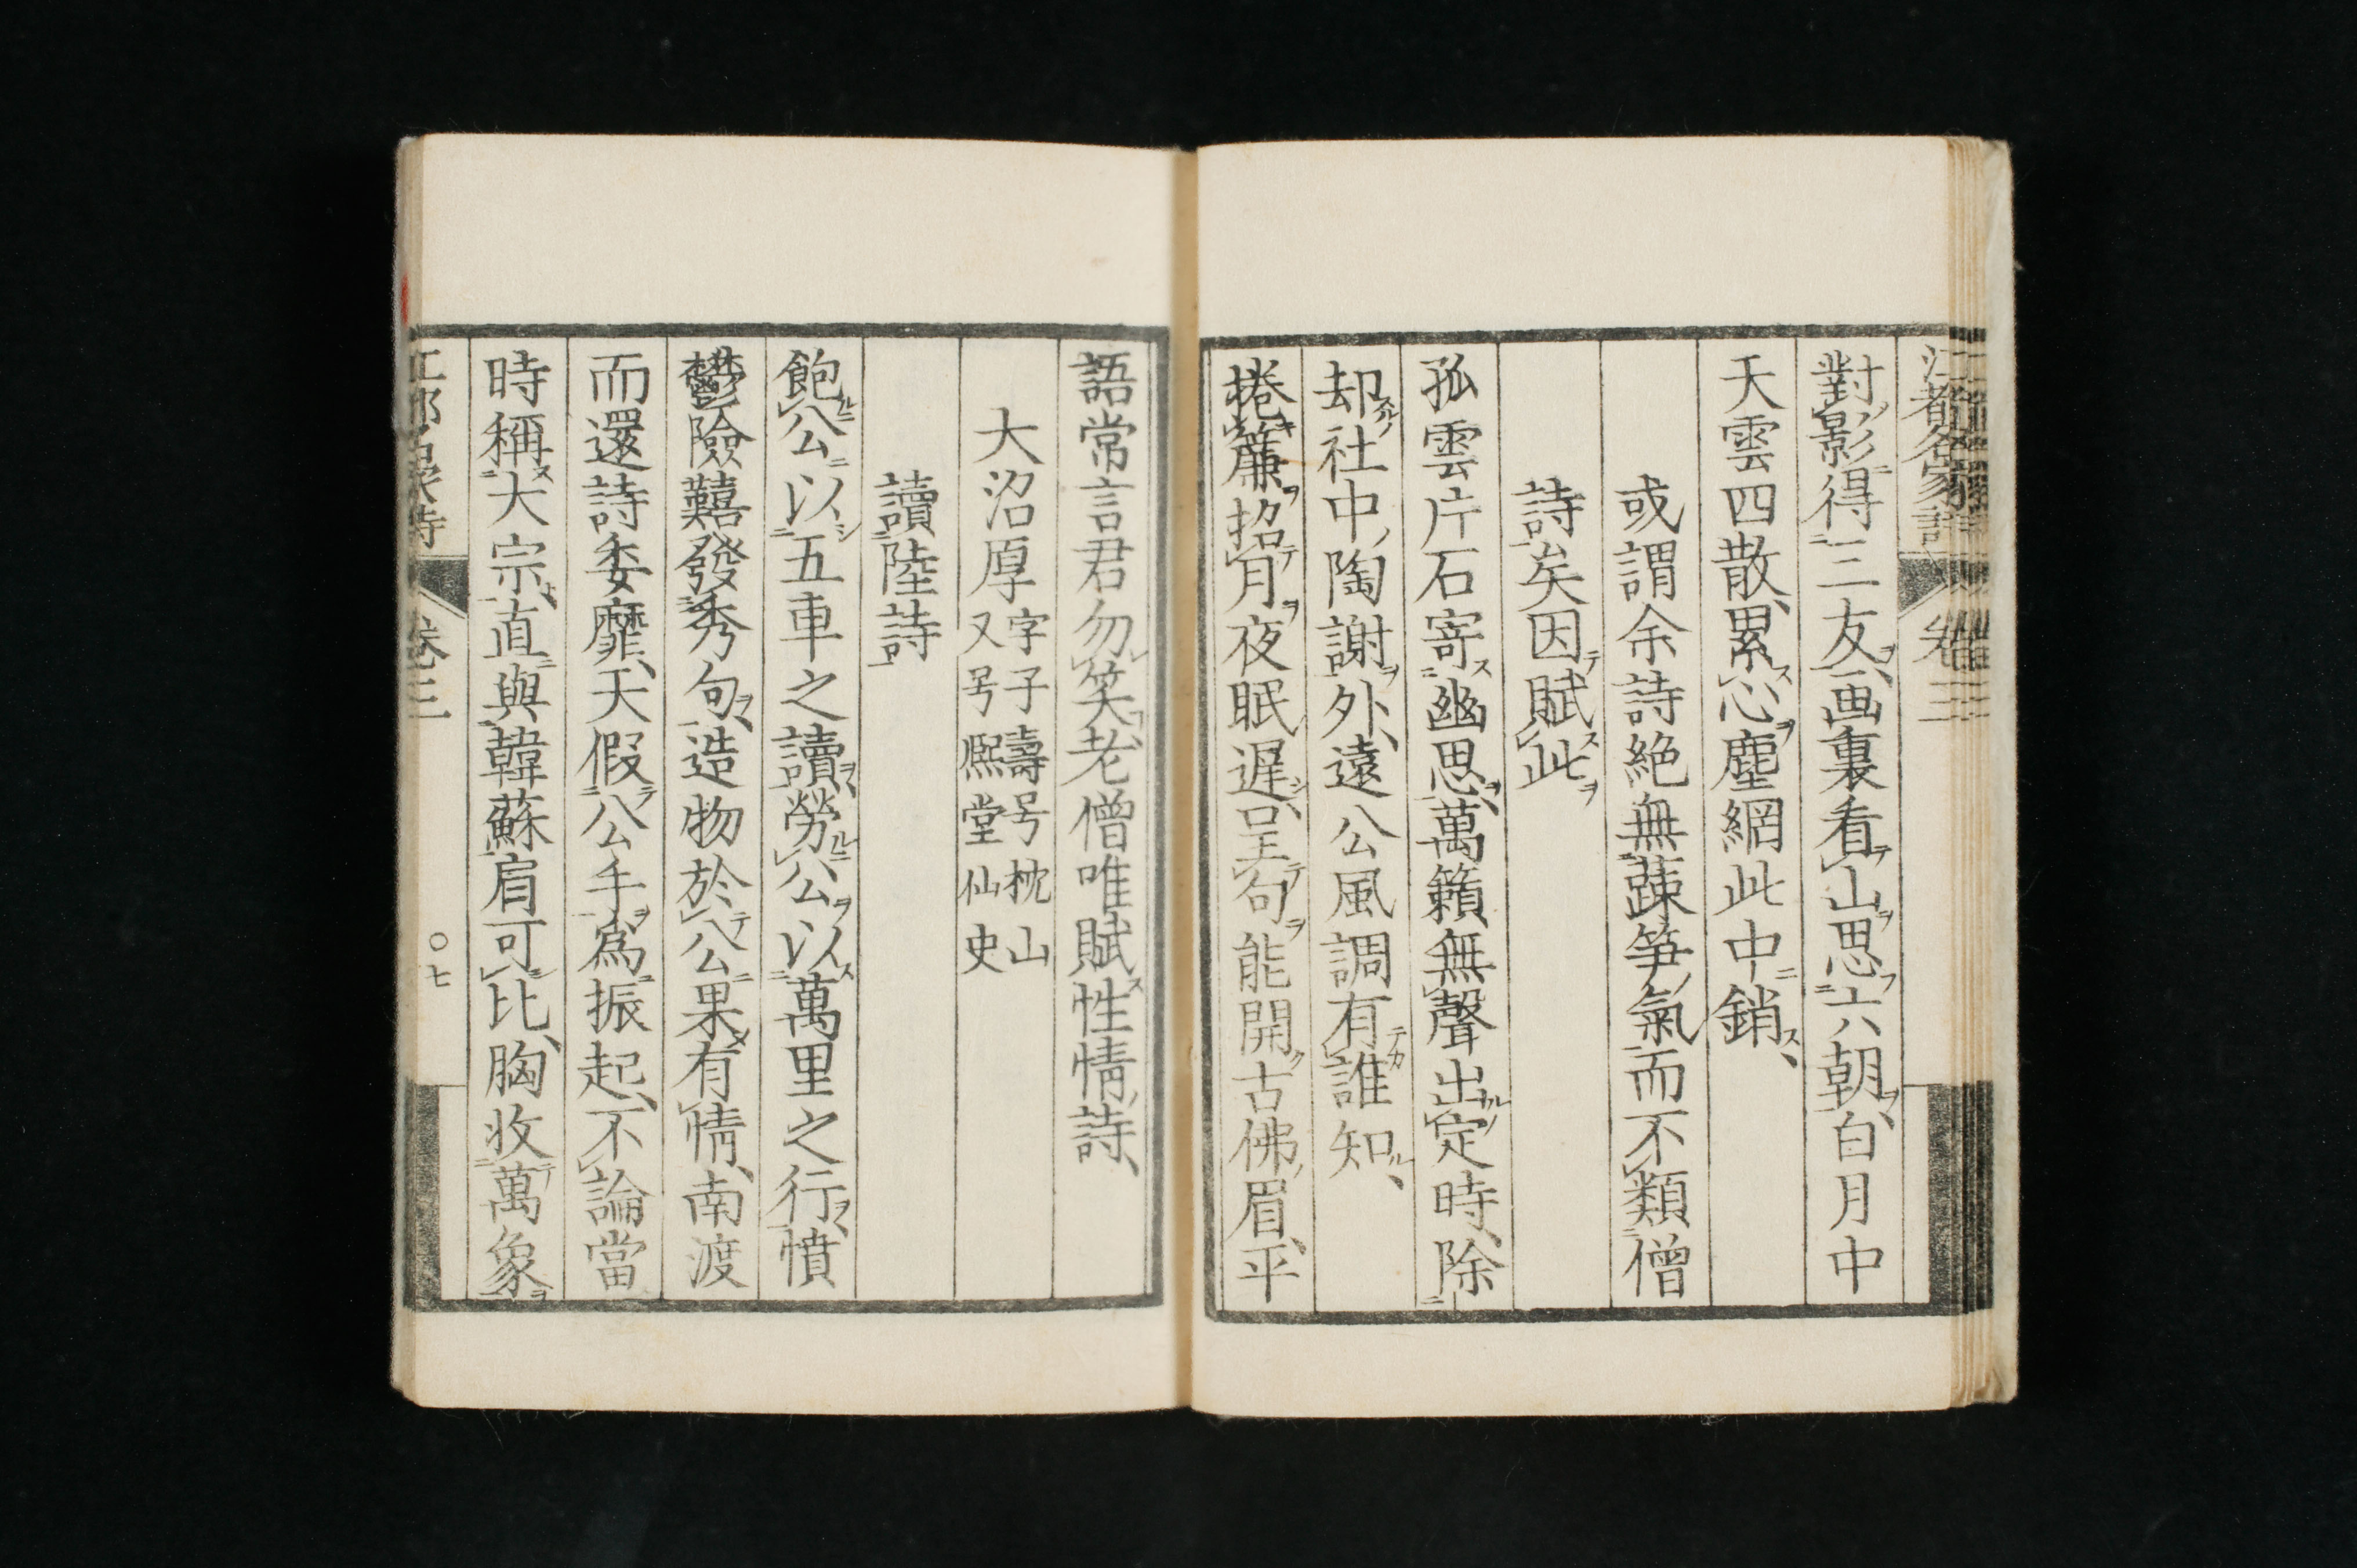 江都名家詩 卷三
對影得三友画裏看山思六朝白月中
天雲四散累心塵網此中銷
或謂余詩絶無蔬笋氣而不類僧
詩矣因賦此
孤雲片石寄幽思萬籟無聲出定時除
却社中陶謝外遠公風調有誰知
捲簾招月夜眠遲呈句能開古佛眉平
語常言君勿笑老僧唯賦性情詩
大沼厚 字子壽号枕山
又号熙堂仙史
讀陸詩
飽公以五車之讀勞公以萬里之行憤
鬱險囏發秀句造物於公果有情南渡
而還詩委靡天假公手爲振起不論當
時稱大宗直與韓蘇肩可比胸收萬象
江都名家詩 卷三 〇七